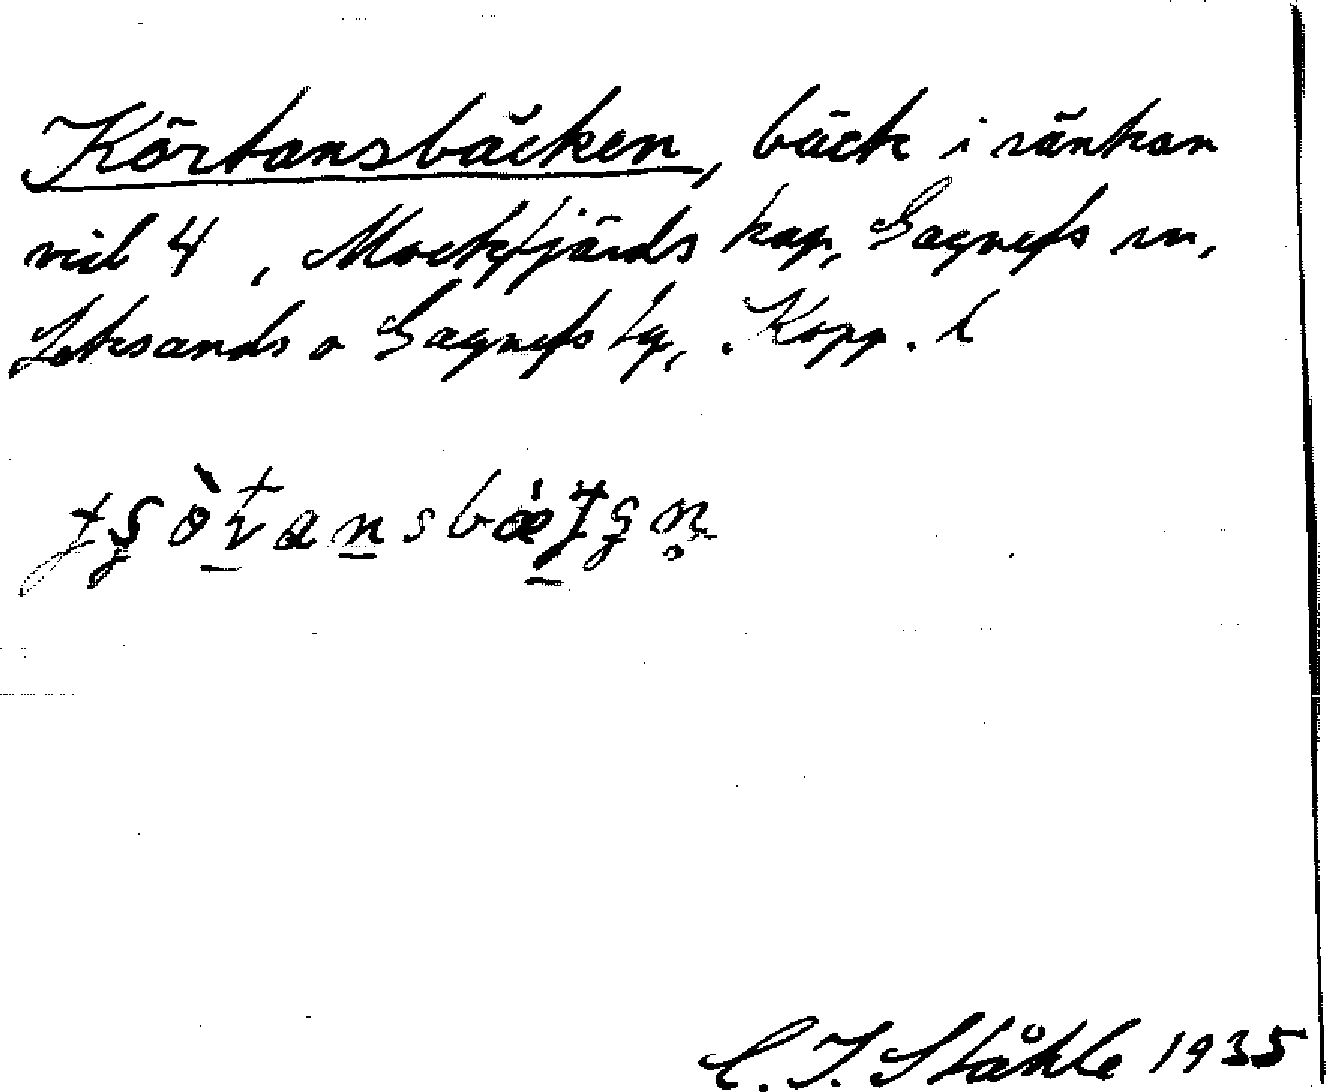 Körtansbäcken, bäck i sänkan
vid 4, Mockfjärds kap, Gagnefs sn,
Leksands o Gagnefs tg, Kopp. l
C. I. Ståhle 1935